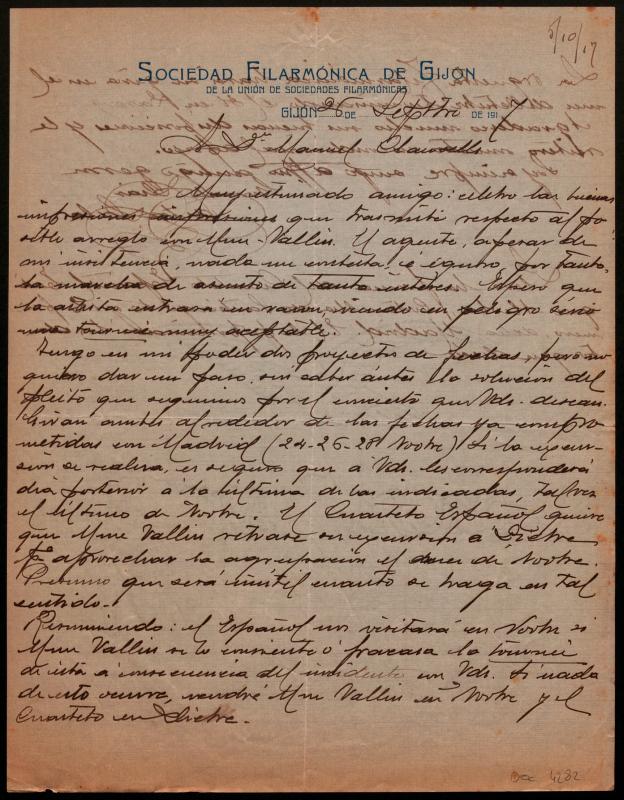 5/10/17
SOCIEDAD FILARMÓNICA DE GIJÓN
DE LA UNIÓN DE SOCIEDADES FILARMÓNICAS
GIJÓN 26 DE Septbre DE 1917
Sr. Dn. Manuel Clausells
Muy estimado amigo: celebro las buenas
impresiones que trasmite respecto al po
sible arreglo con Mme. Vallin. El agente, apesar de
mi insistencia, nada me contesta é ignoro, por tanto,
la marcha de asunto de tanto interés. Espero que
la artista entrará en razon viendo en peligro sino
una tournée muy aceptable.
Tengo en mi poder dos proyectos de fechas, pero no
quiero dar un paso, sin saber antes la solución del
pleito que seguimos por el concierto que Vds. desean.
Giran ambos alrededor de las fechas ya compro
metidas con Madrid (24-26-28 Novbre) Si la excur-
sión se realiza, es seguro que á Vds. les corresponderá
dia posterior á la última de las indicadas, tal vez
el último de Novbre. El Cuarteto Español quiere
que Mme Vallin retrase su excursión á Dicbre
pa aprovechar la agrupacion el mes de Novbre.
Presumo que será inútil cuanto se haga en tal
sentido.
Resumiendo: el Español nos visitará en Novbre si
Mme Vallin se lo consiente ó fracasa la tournée
de esta á consecuencia del incidente con Vds. Si nada
de esto ocurre, vendrá Mme Vallin en Novbre y el
Cuarteto en Dicbre.
Doc 4282